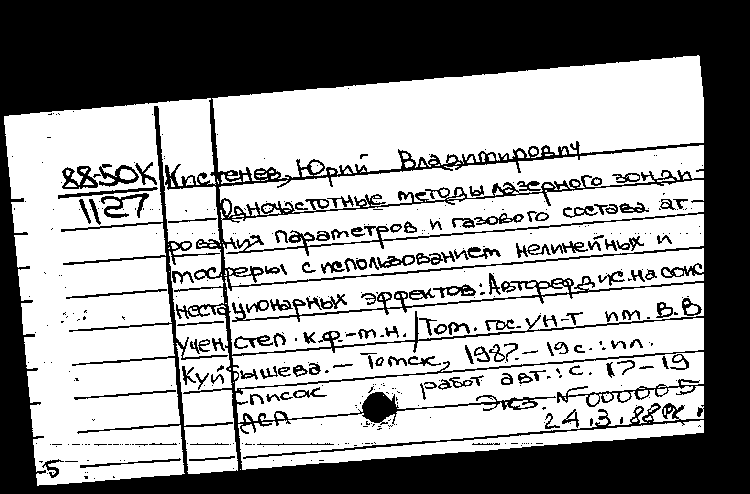 88-50К Кистенев, Юрий Владимирович
1127 Одночастотные методы лазерного зонди-
рования параметров и газового состава ат-
мосферы с использованием нелинейных и
нестационарных эффектов: Автореф. дис. на соиск
учен. степ. к.ф.-м.н. / Том. гос. ун-т им. В.В
Куйбышева. – Томск, 1987. – 19 с.: ил.
Список работ авт.: с. 17-19
ДСП Экз. № 000005
24.3.88
-5